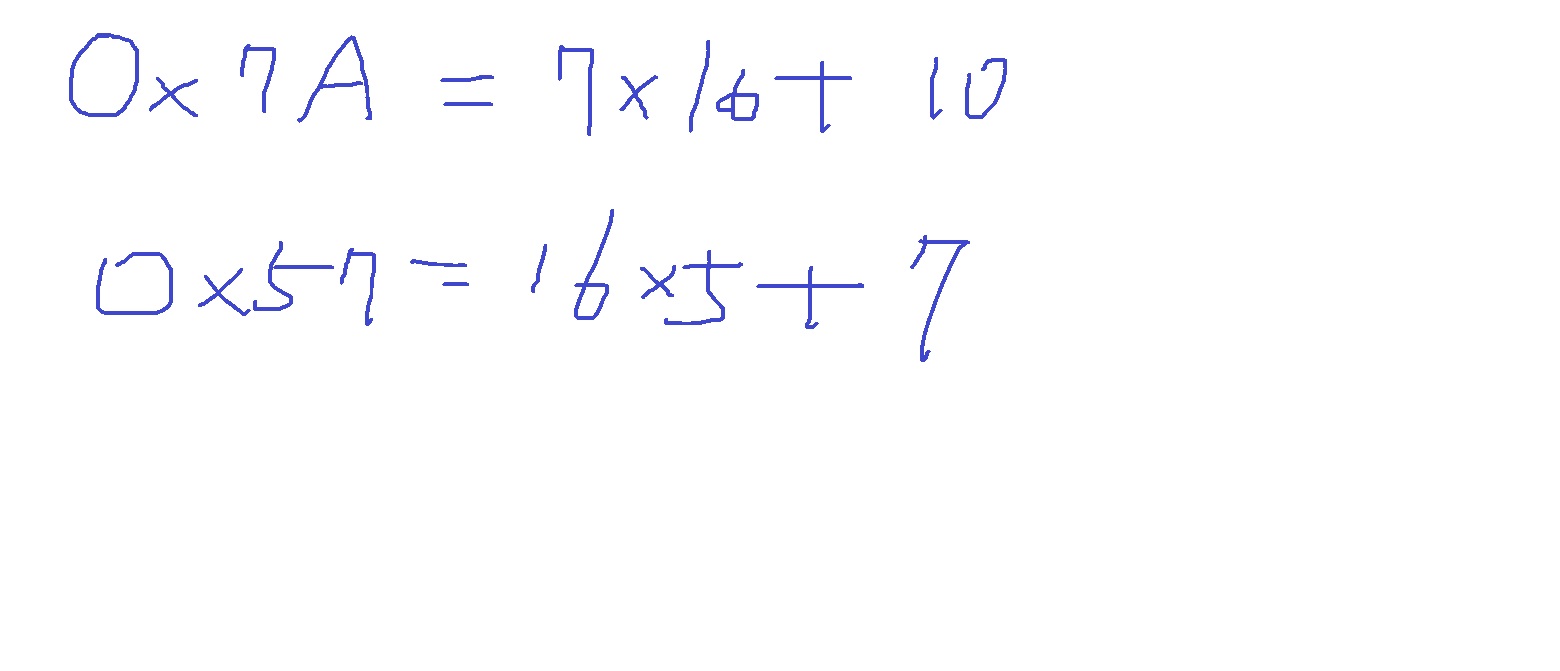 0x7A = 7x16+ 10
0x57 = 16x5+ 7